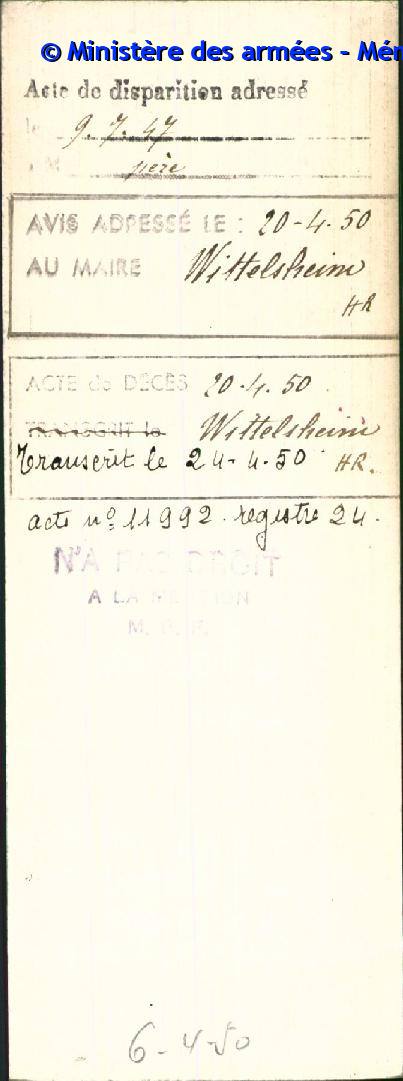 © Ministère des armées - Mém
Acte de disparition adressé
le 9.7.47
à M père
AVIS ADRESSÉ LE : 20-4-50
AU MAIRE Wittelsheim
HR
ACTE de DÉCÈS 20-4.50
TRANSCRIT le Wittelsheim
Transcrit le 24-4-50 HR.
acte nº 11992. registre 24.
N'A PAS DROIT
A LA MENTION
M. P. F.
6-4-50